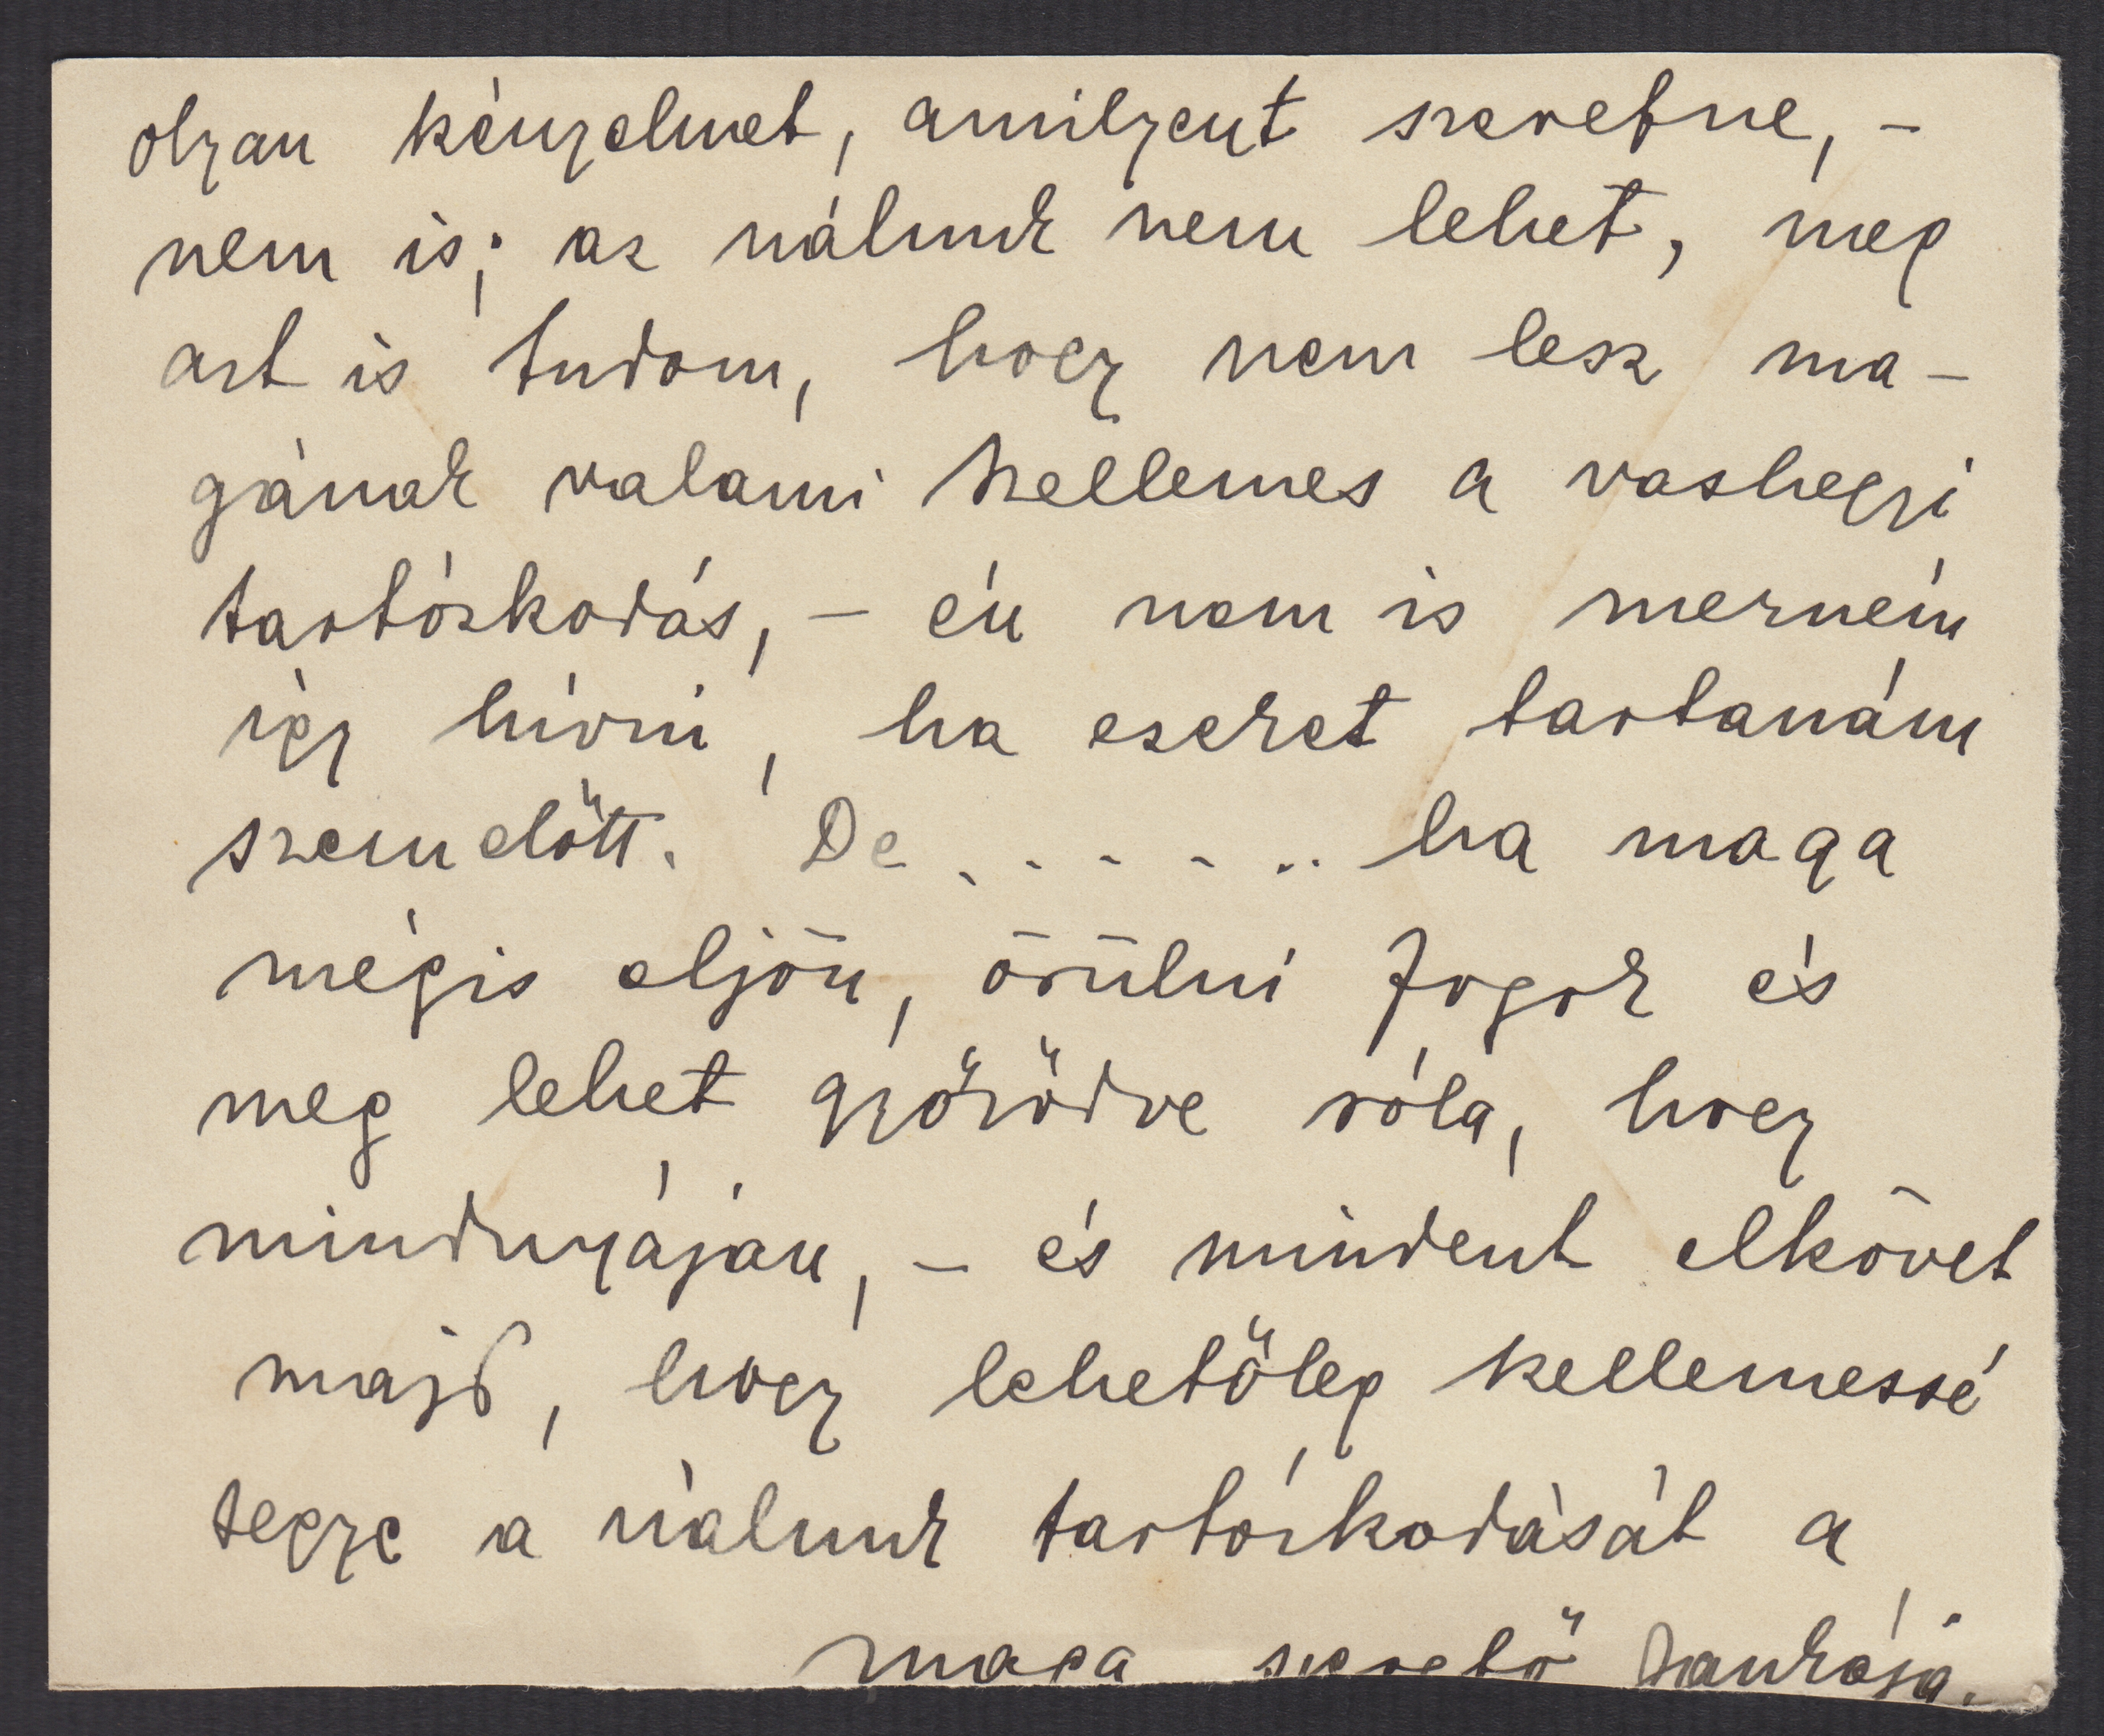 olyan kényelmet, amilyent szeretne, -
nem is; az nálunk nem lehet, meg
azt is tudom, hogy nem lesz ma-
gának valami kellemes a vashegyi
tartózkodás, - én nem is merném
így hívni, ha ezeket tartanám
szem előtt. De . . . . . . ha maga
mégis eljön, örülni fogok és
meg lehet győződve róla, hogy
mindnyájan, - és mindent elkövet
majd, hogy lehetőleg kellemessé
tegye a nálunk tartózkodását a
maga szerető